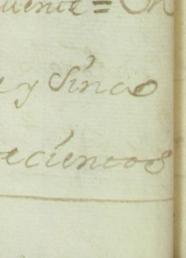 uente = En
e y Sinco
ecientos